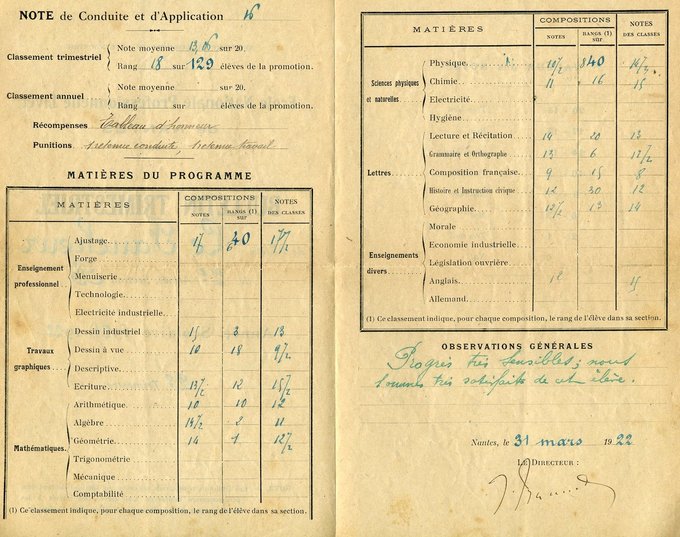 NOTE de Conduite et d'Application 16
Classement trimestriel
Note moyenne 13,06 sur 20.
Rang 18 sur 129 élèves de la promotion.
Classement annuel
Note moyenne sur 20.
Rang sur élèves de la promotion.
Récompenses Tableau d'honneur
Punitions 1 retenue conduite, 1 retenue travail
MATIÈRES DU PROGRAMME
MATIÈRES COMPOSITIONS NOTES DES CLASSES
NOTES RANGS (1) sur
Enseignement professionnel
Ajustage 40
Forge
Menuiserie
Technologie
Electricité industrielle
Travaux graphiques
Dessin industriel 15 3 13
Dessin à vue 10 18 9 1/2
Descriptive
Ecriture 13 1/2 12 15 1/2
Mathématiques
Arithmétique 10 10 12
Algèbre 14 1/2 2 11
Géométrie 14 1 12 1/2
Trigonométrie
Mécanique
Comptabilité
(1) Ce classement indique, pour chaque composition, le rang de l'élève dans sa section.
MATIÈRES COMPOSITIONS NOTES DES CLASSES
NOTES RANGS (1) sur
Sciences physiques et naturelles
Physique 10 1/2 8 40
Chimie 11 16 15
Electricité
Hygiène
Lettres
Lecture et Récitation 14 20 13
Grammaire et Orthographe 13 6 12 1/2
Composition française 9 15 8
Histoire et Instruction civique 12 30 12
Géographie 12 1/2 13 14
Morale
Enseignements divers
Economie industrielle
Législation ouvrière
Anglais 12 15
Allemand
(1) Ce classement indique, pour chaque composition, le rang de l'élève dans sa section.
OBSERVATIONS GÉNÉRALES
Progrès très sensibles; nous
sommes très satisfaits de cet élève.
Nantes, le 31 mars 1922
LE DIRECTEUR :